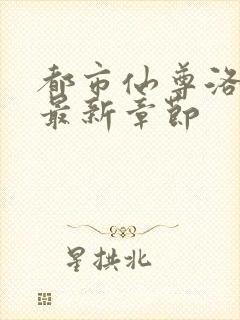 都市仙尊洛
最新章节
星拱北